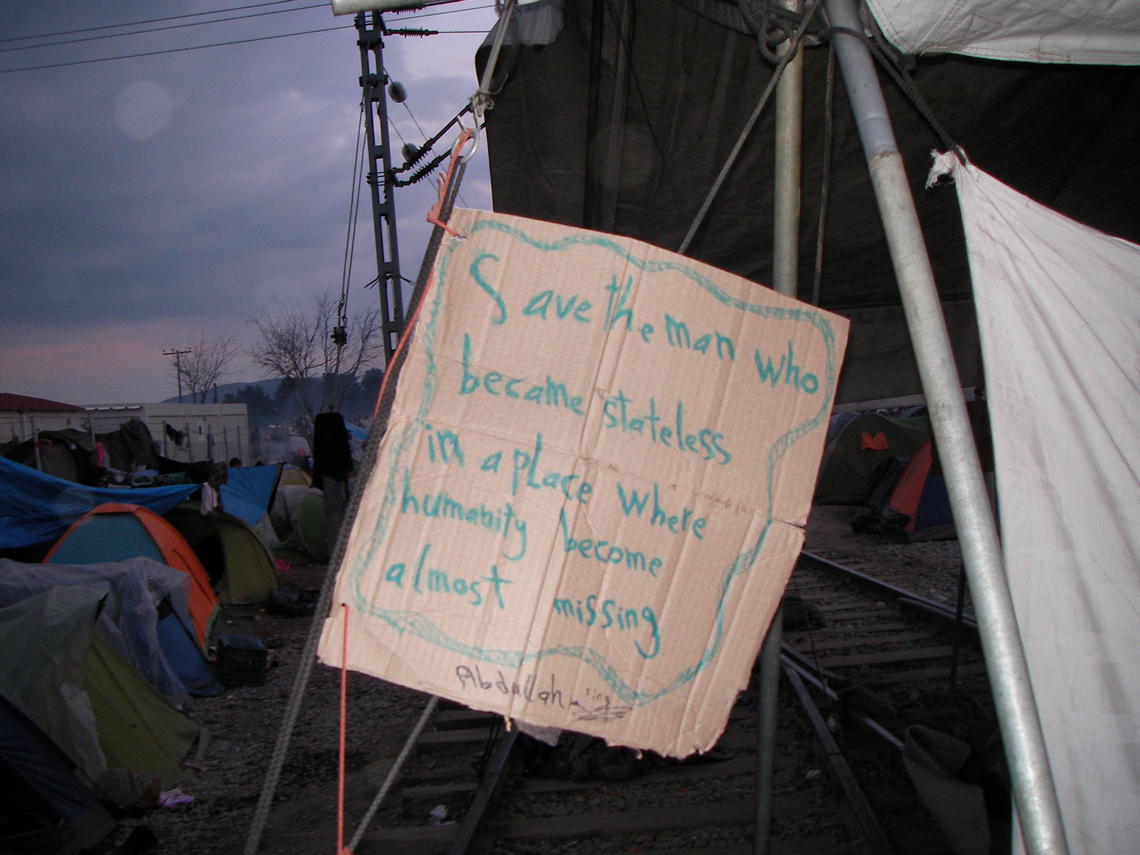 Save the man who
became stateless
in a place where
humanity become
almost missing
Abdullah